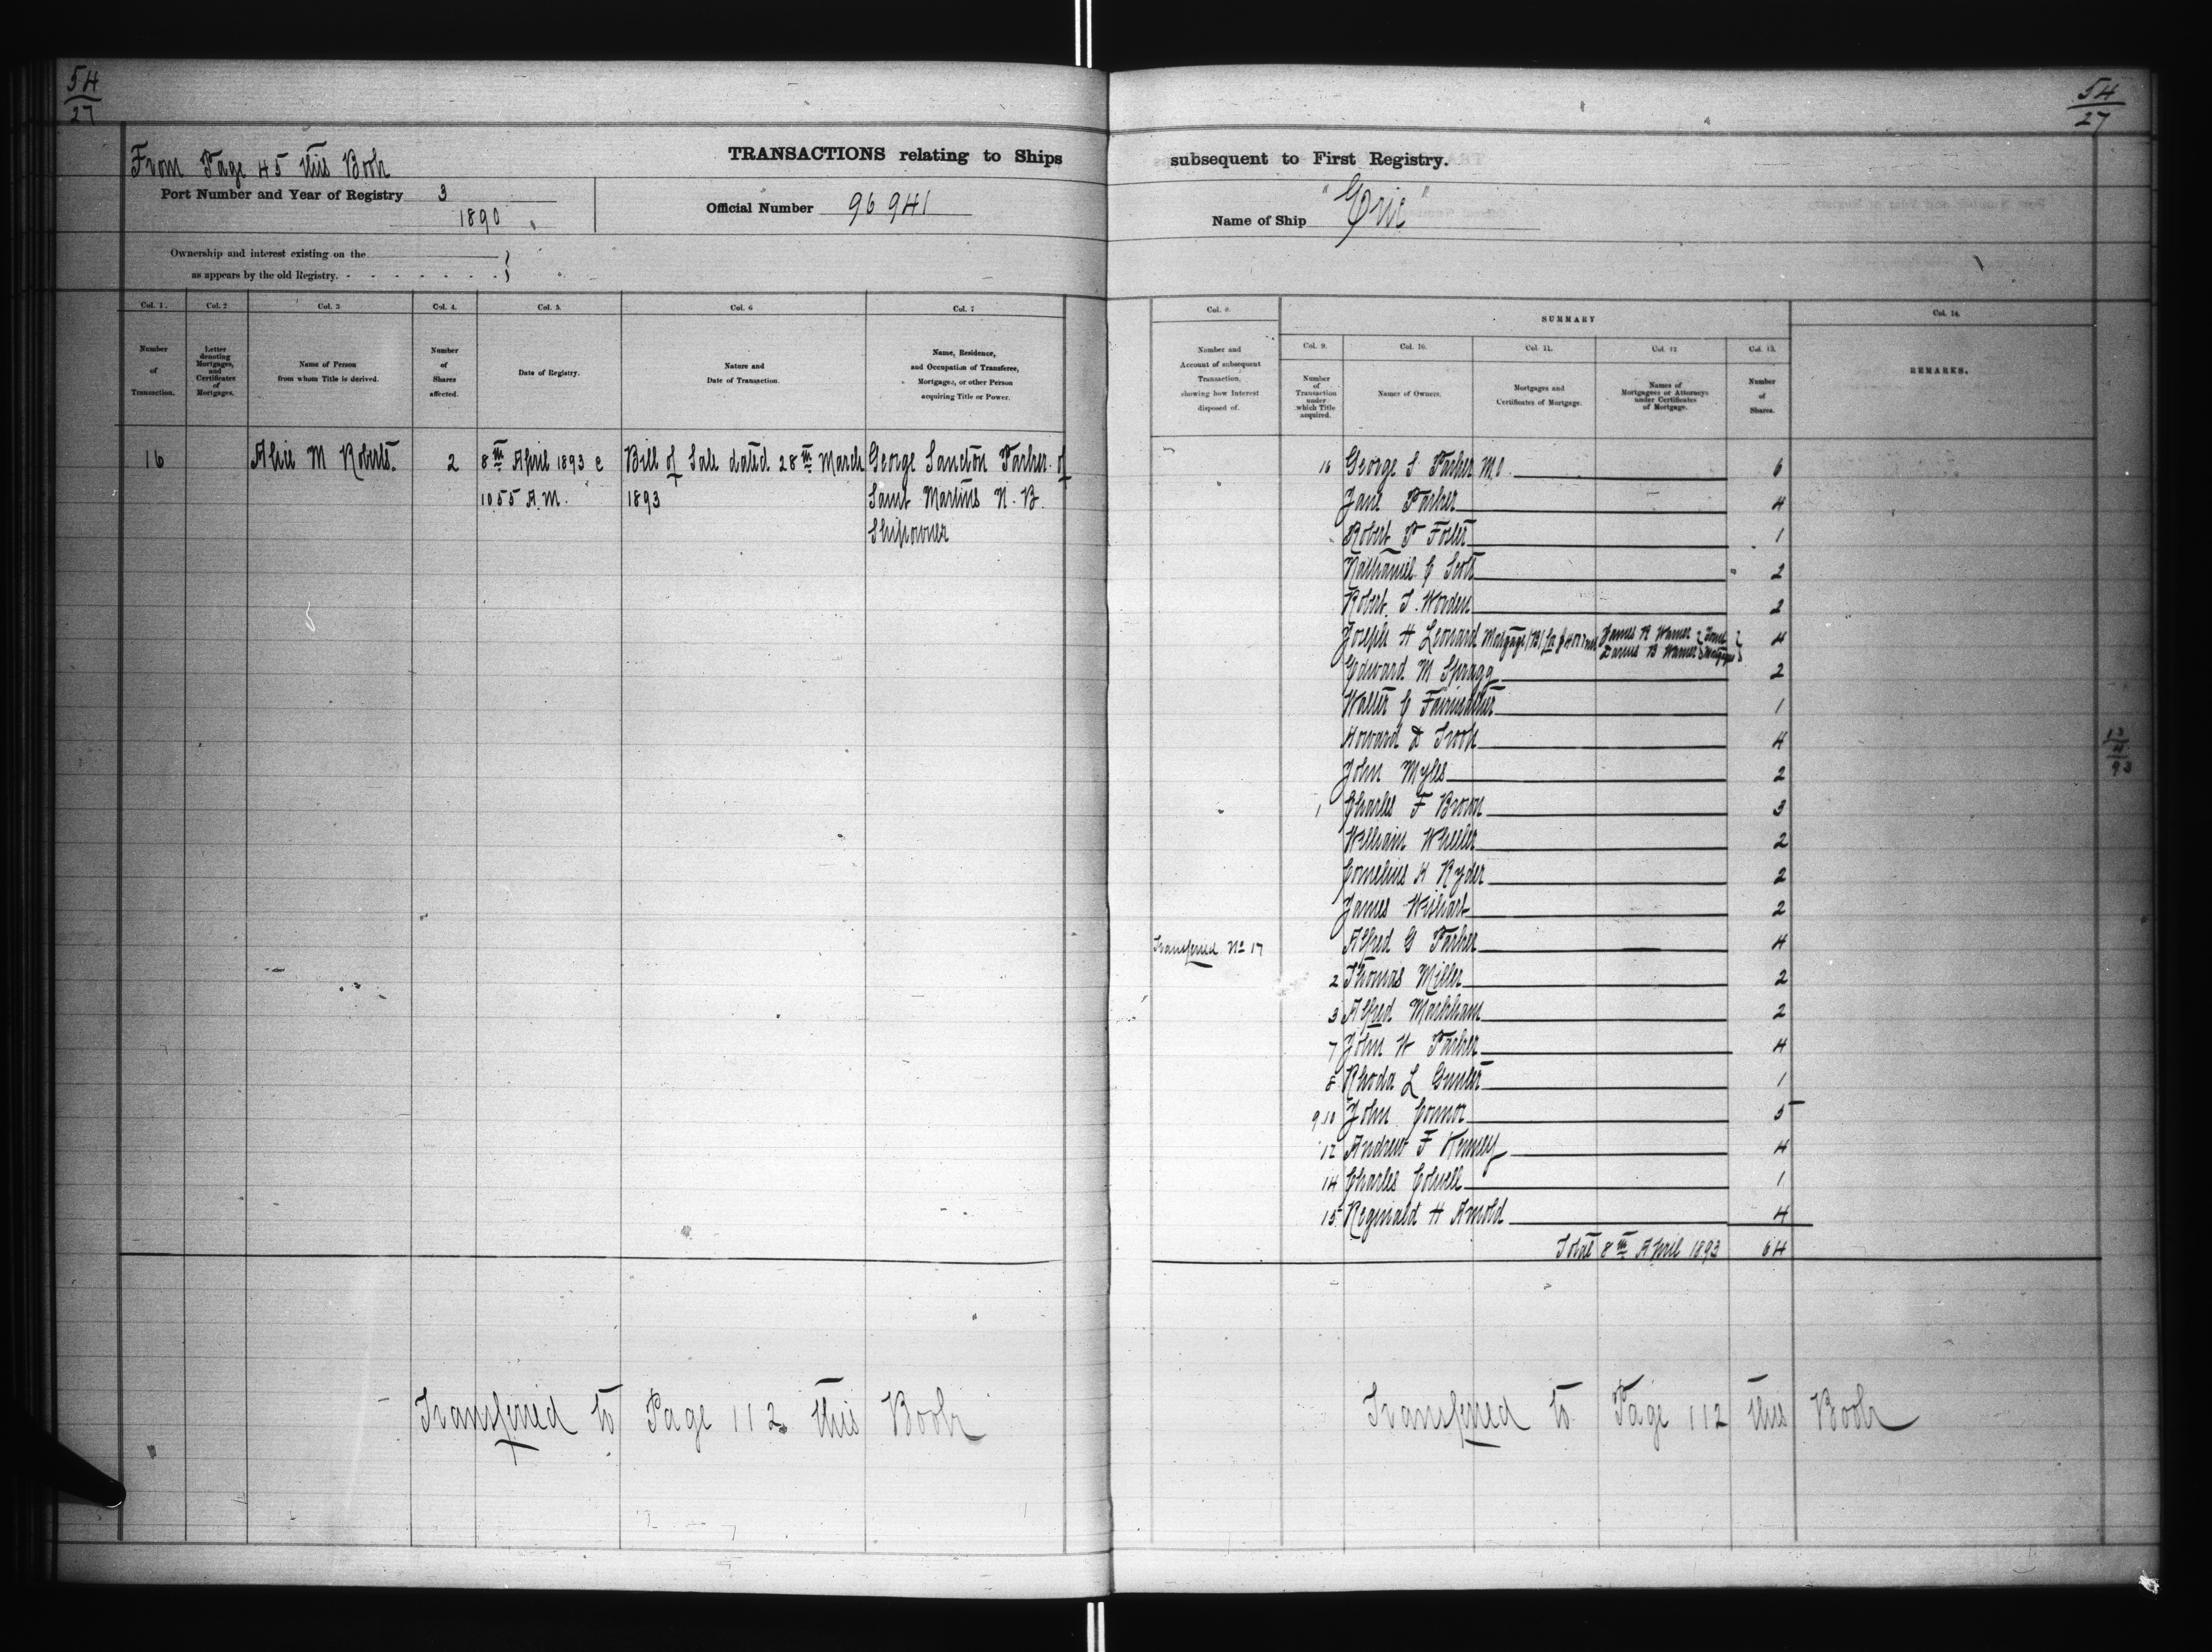 54
27
From Page 45 this Book
TRANSACTIONS relating to Ships
Port Number and Year of Registry 3
1890
Official Number 96 941
Ownership and interest existing on the
as appears by the old Registry.
Col. 1. Col. 2 Col. 3 Col. 4. Col. 5. Col. 6 Col. 7
Number of Transaction.
Letter denoting Mortgages, and Certificates of Mortgages.
Name of Person from whom Title is derived.
Number of Shares affected.
Date of Registry.
Nature and Date of Transaction.
Name, Residence, and Occupation of Transferee, Mortgagee, or other Person acquiring Title or Power.
16 Alice M Roberts. 2 8th April 1893 @ Bill of Sale dated 28th March George Sancton Parker of
10.55 A.M. 1893 Saint Martins N. B.
Shipowner
Transferred to Page 112 this Book
54
27
subsequent to First Registry.
Name of Ship "Eric"
Col. 8. SUMMARY Col. 14.
Col. 9. Col. 10. Col. 11. Col. 12 Col. 13.
Number and Account of subsequent Transaction, showing how Interest disposed of.
Number of Transaction under which Title acquired.
Names of Owners.
Mortgages and Certificates of Mortgage.
Names of Mortgagees or Attorneys under Certificates of Mortgage.
Number of Shares.
REMARKS.
16 George S Parker M.O. 6
Jane Parker 4
Robert P Foster 1
Nathaniel C Scott 2
Robert S. Worden 2
Joseph H Leonard Mortgage (B) James R Warner Joint 4
Darius B Warner Mortgagees
Edward M Spragg 2
Walter C Fairweather 1
Howard D Troop 4
John Myles 2
1 Charles F Brown 3
William Wheeler 2
Cornelius H Ryder 2
James Wishart 2
Transferred No 17 Alfred G Parker 4
2 Thomas Miller 2
3 Alfred Markham 2
7 John W Parker 4
8 Rhoda L Gunter 1
9.10 John Connor 5
12 Andrew F Kenney 4
14 Charles Colwell 1
15 Reginald H Arnold 4
Total 8th April 1893 64
13
4
93
Transferred to Page 112 this Book